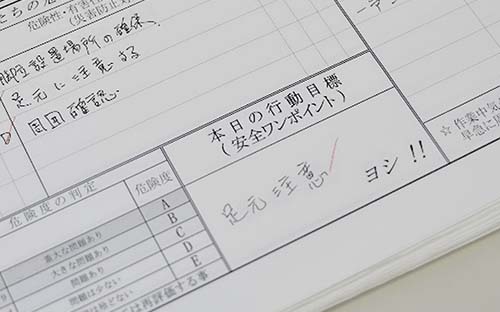 危険性・有害性
(災害防止対
脚立設置場所の確保、
足元に注意する
周囲確認.
本日の行動目標
(安全ワンポイント)
足元注意
ヨシ!!
☆作業中気
早急に
危険度の判定
危険度
重大な問題あり
A
大きな問題あり
B
問題あり
C
問題は少ない
D
問題は殆どない
E
は再評価する事